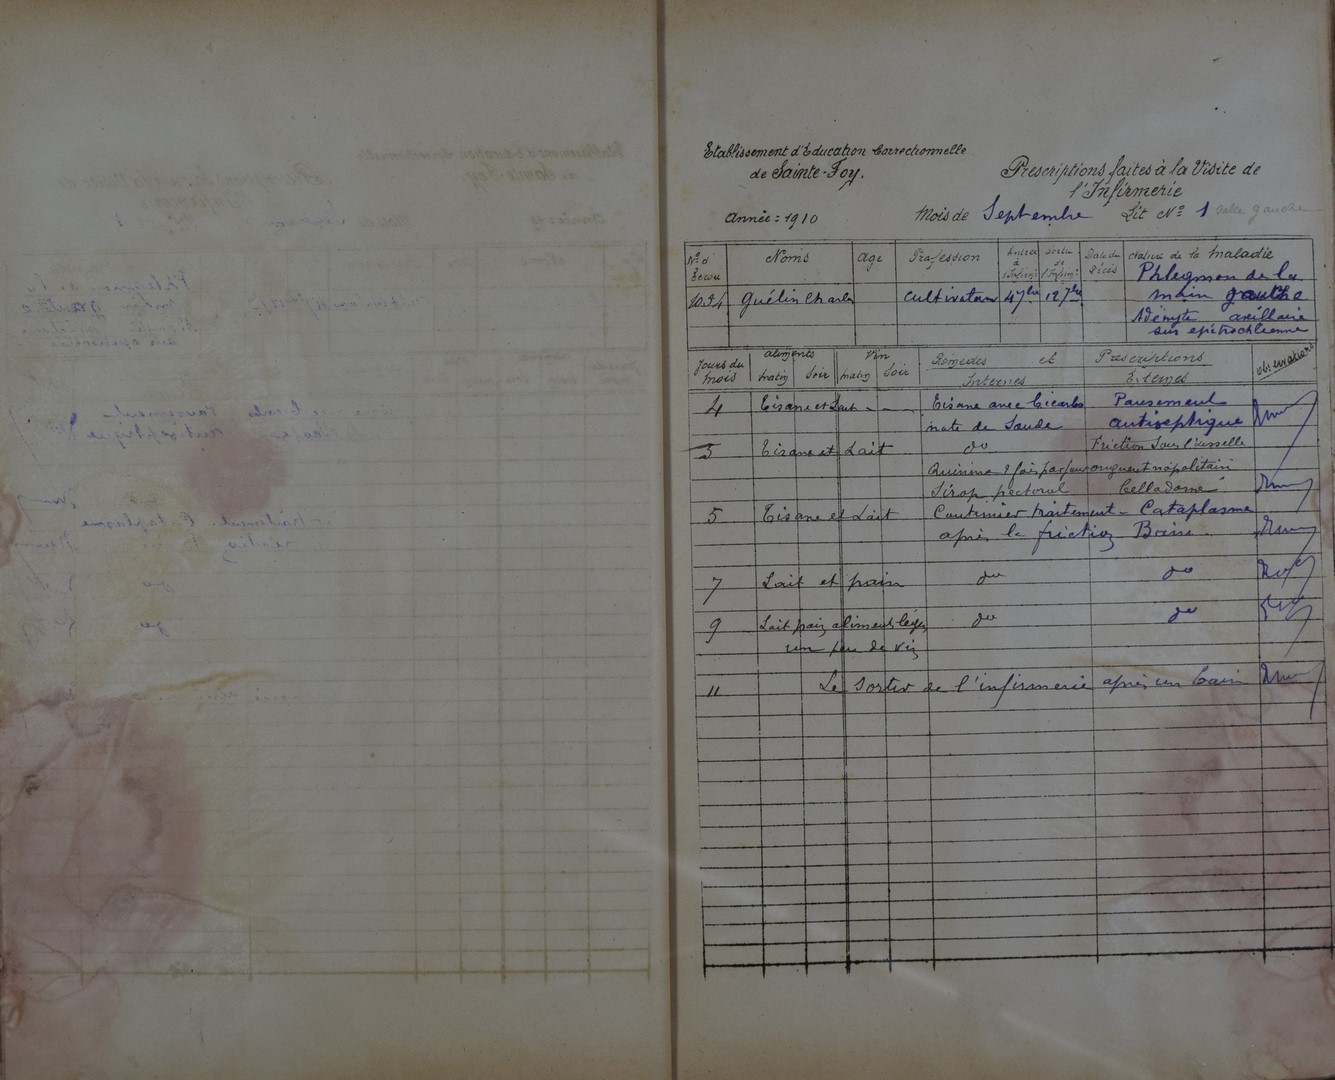 Etablissement d'Education Correctionnelle
de Sainte-Foy.
Prescriptions faites à la Visite de
l'Infirmerie
Année: 1910 Mois de Septembre Lit Nº 1 Salle gauche
Nº d'Ecrou Noms Age Profession Entrée à l'Infirmie Sortie de l'Infirmie Date du Décès Nature de la maladie
Guélin Charles Cultivateur 4 7bre 12 7bre Phlegmon de la
main gauche
Adényte axillaire
sus epitrochlienne
Jours du mois Aliments Vin Remèdes et Prescriptions Observations
matin Soir matin Soir Internes Externes
4 Tisane et Lait Tisane avec bicarbo Pansement
nate de Soude antiseptique
5 Tisane et Lait do Friction Sous l'aisselle
Quinine 2 fois par jour onguent napolitain
Sirop pectoral belladoné
5 Tisane et Lait Continuer traitement - Cataplasme
après la friction Bain.
7 Lait et pain do do
9 Lait pain aliments légers do do
un peu de vin
11 Le sortir de l'infirmerie après un bain